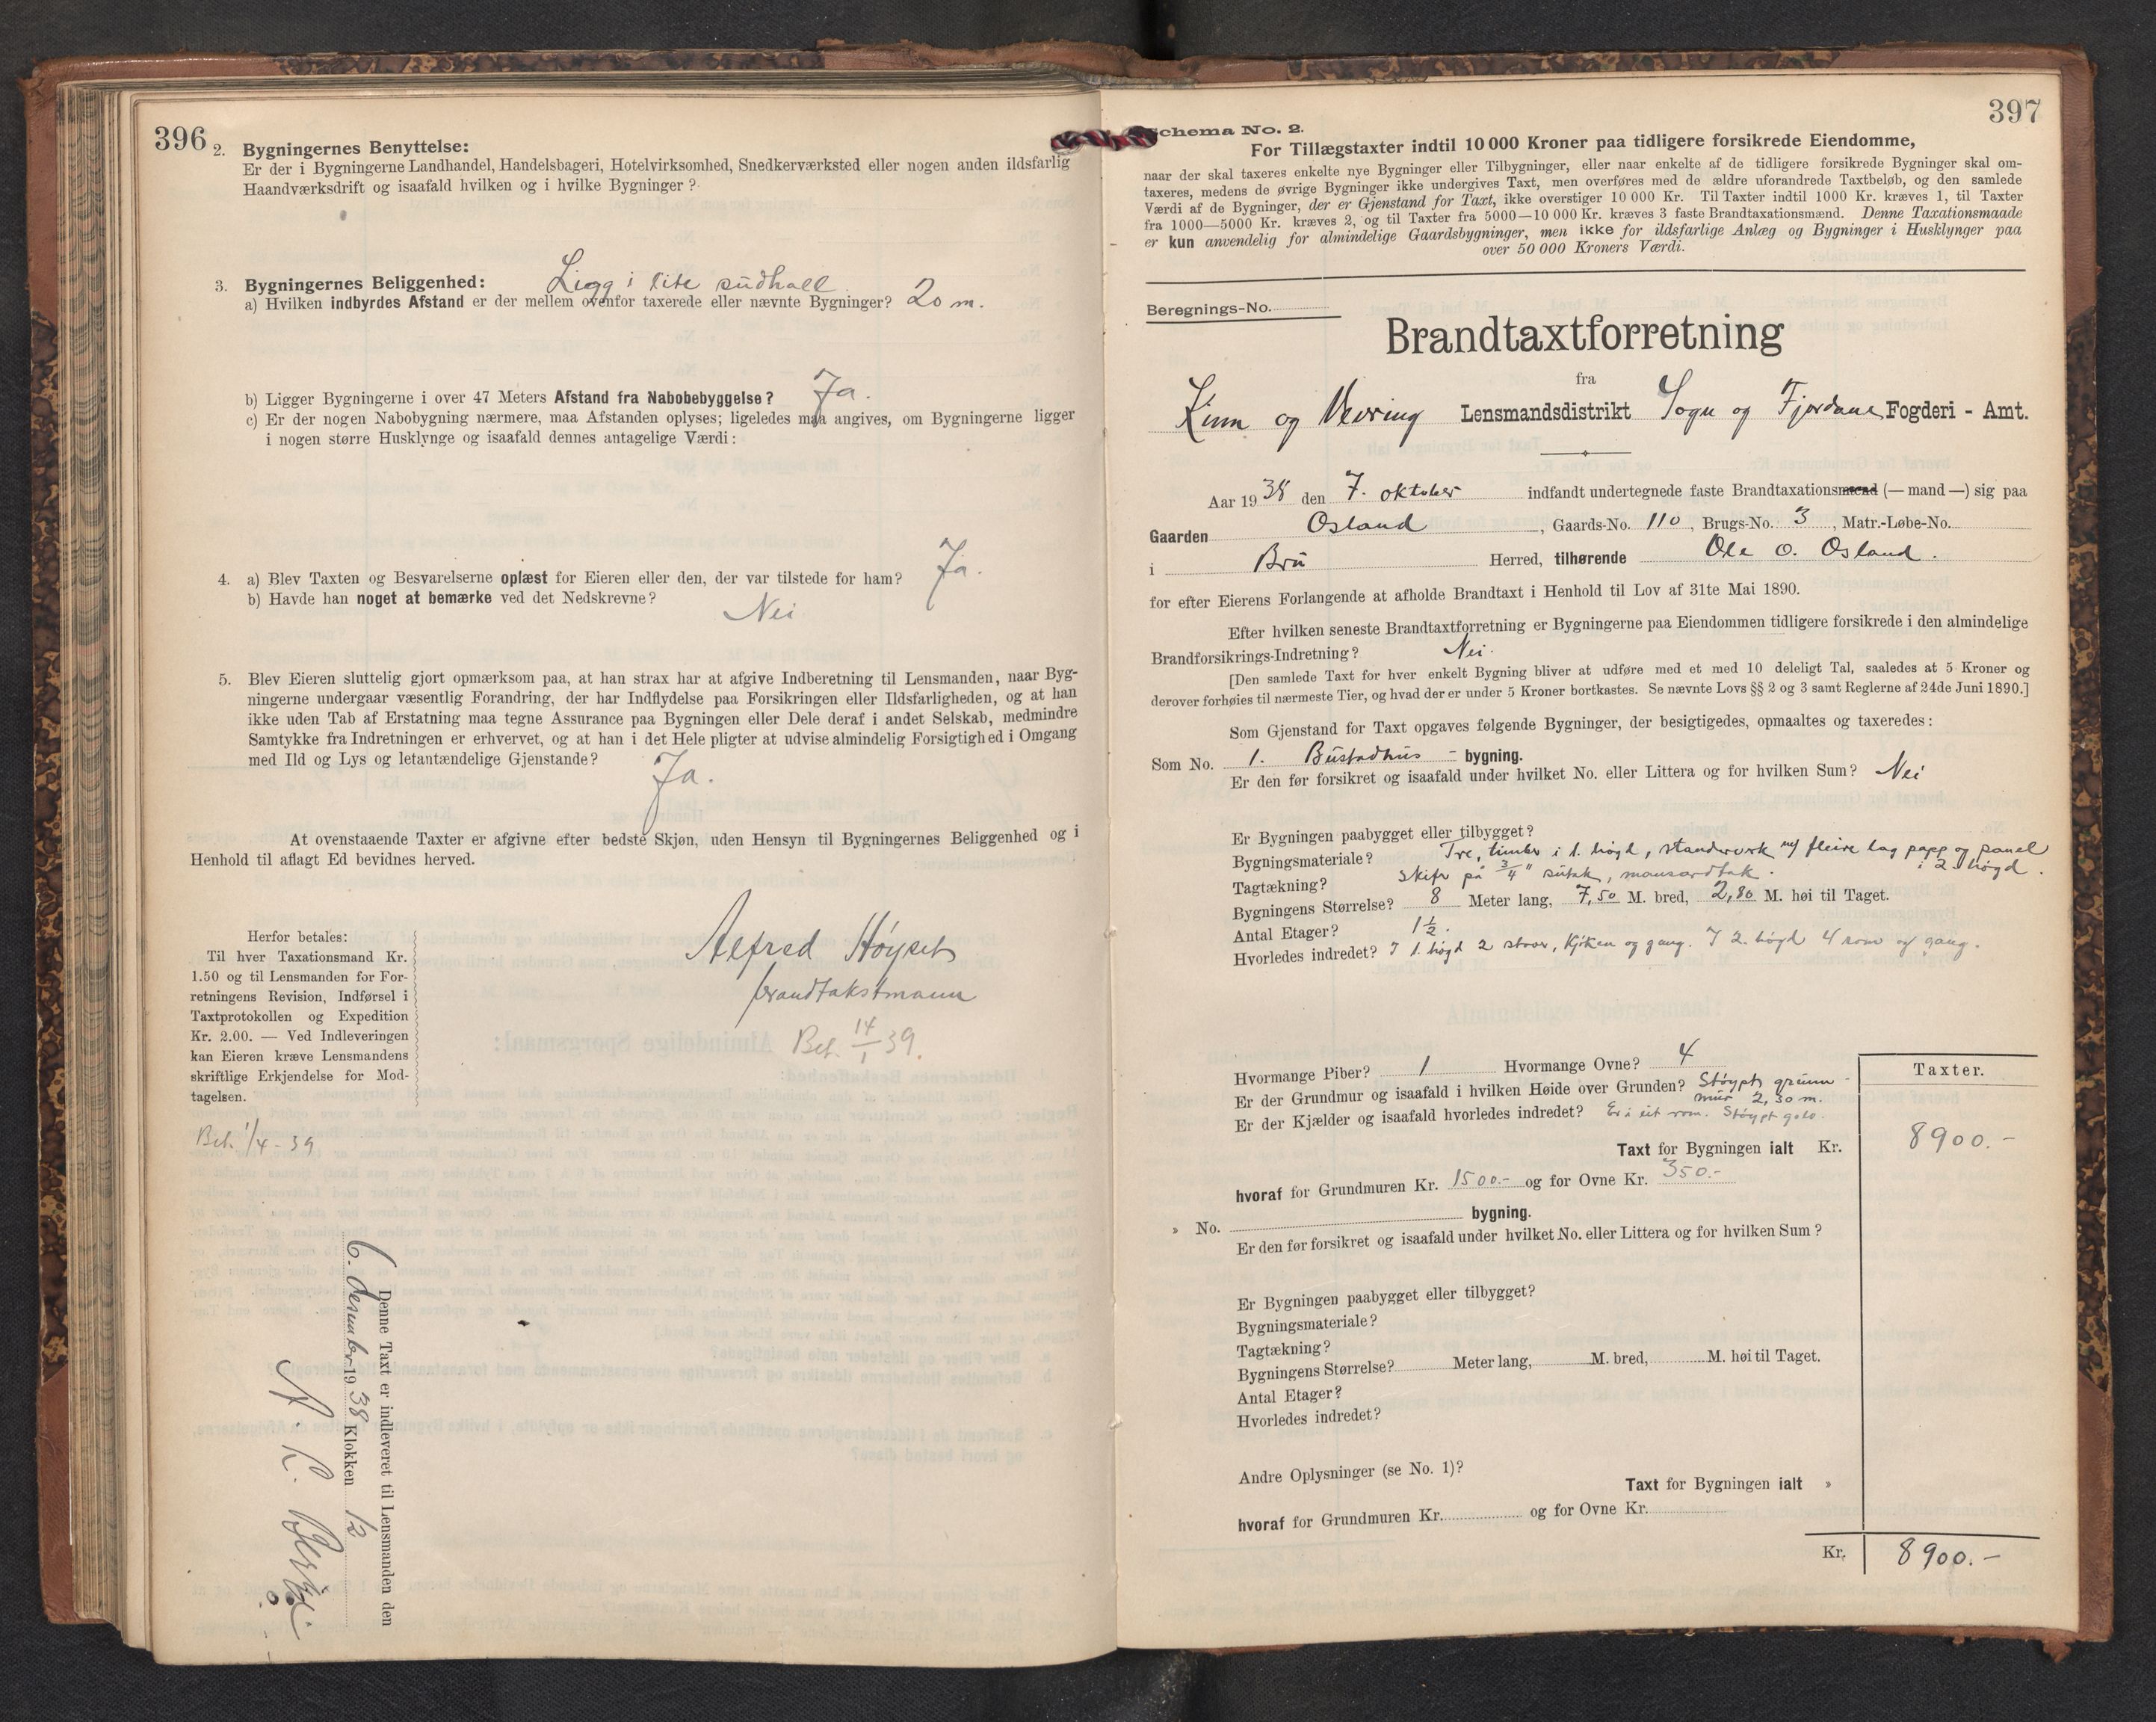 396
2. Bygningernes Benyttelse:
Er der i Bygningerne Landhandel, Handelsbageri, Hotelvirksomhed, Snedkerværksted eller nogen anden ildsfarlig
Haandværksdrift og isaafald hvilken og i hvilke Bygninger?
3. Bygningernes Beliggenhed: Ligg i lite sudhall.
a) Hvilken indbyrdes Afstand er der mellem ovenfor taxerede eller nævnte Bygninger? 20 m.
b) Ligger Bygningerne i over 47 Meters Afstand fra Nabobebyggelse? Ja.
c) Er der nogen Nabobygning nærmere, maa Afstanden oplyses; ligeledes maa angives, om Bygningerne ligger
i nogen større Husklynge og isaafald dennes antagelige Værdi:
4. a) Blev Taxten og Besvarelserne oplæst for Eieren eller den, der var tilstede for ham? Ja.
b) Havde han noget at bemærke ved det Nedskrevne? Nei
5. Blev Eieren sluttelig gjort opmærksom paa, at han strax har at afgive Indberetning til Lensmanden, naar Byg-
ningerne undergaar væsentlig Forandring, der har Indflydelse paa Forsikringen eller Ildsfarligheden, og at han
ikke uden Tab af Erstatning maa tegne Assurance paa Bygningen eller Dele deraf i andet Selskab, medmindre
Samtykke fra Indretningen er erhvervet, og at han i det Hele pligter at udvise almindelig Forsigtighed i Omgang
med Ild og Lys og letantændelige Gjenstande? Ja.
At ovenstaaende Taxter er afgivne efter bedste Skjøn, uden Hensyn til Bygningernes Beliggenhed og i
Henhold til aflagt Ed bevidnes herved.
Alfred Høyset
brandtakstmann
Bet. 14/1 39.
Herfor betales:
Til hver Taxationsmand Kr.
1.50 og til Lensmanden for For-
retningens Revision, Indførsel i
Taxtprotokollen og Expedition
Kr. 2.00. — Ved Indleveringen
kan Eieren kræve Lensmandens
skriftlige Erkjendelse for Mod-
tagelsen.
Bet. 1/4-39
Denne Taxt er indleveret til Lensmanden den
6. desember 1938 Klokken 12
397
Schema No. 2.
For Tillægstaxter indtil 10 000 Kroner paa tidligere forsikrede Eiendomme,
naar der skal taxeres enkelte nye Bygninger eller Tilbygninger, eller naar enkelte af de tidligere forsikrede Bygninger skal om-
taxeres, medens de øvrige Bygninger ikke undergives Taxt, men overføres med de ældre uforandrede Taxtbeløb, og den samlede
Værdi af de Bygninger, der er Gjenstand for Taxt, ikke overstiger 10 000 Kr. Til Taxter indtil 1000 Kr. kræves 1, til Taxter
fra 1000—5000 Kr. kræves 2, og til Taxter fra 5000—10 000 Kr. kræves 3 faste Brandtaxationsmænd. Denne Taxationsmaade
er kun anvendelig for almindelige Gaardsbygninger, men ikke for ildsfarlige Anlæg og Bygninger i Husklynger paa
over 50 000 Kroners Værdi.
Beregnings-No.
Brandtaxtforretning
fra
Kinn og Vevring Lensmandsdistrikt Sogn og Fjordane Fogderi - Amt.
Aar 1938 den 7. oktober indfandt undertegnede faste Brandtaxationsmænd (—mand—) sig paa
Gaarden Osland, Gaards-No. 110, Brugs-No. 3, Matr.-Løbe-No.
i Bru Herred, tilhørende Ole O. Osland.
for efter Eierens Forlangende at afholde Brandtaxt i Henhold til Lov af 31te Mai 1890.
Efter hvilken seneste Brandtaxtforretning er Bygningerne paa Eiendommen tidligere forsikrede i den almindelige
Brandforsikrings-Indretning? Nei.
[Den samlede Taxt for hver enkelt Bygning bliver at udføre med et med 10 deleligt Tal, saaledes at 5 Kroner og
derover forhøies til nærmeste Tier, og hvad der er under 5 Kroner bortkastes. Se nævnte Lovs §§ 2 og 3 samt Reglerne af 24de Juni 1890.]
Som Gjenstand for Taxt opgaves følgende Bygninger, der besigtigedes, opmaaltes og taxeredes:
Som No. 1. Bustadhus - bygning.
Er den før forsikret og isaafald under hvilket No. eller Littera og for hvilken Sum? Nei
Er Bygningen paabygget eller tilbygget?
Bygningsmateriale? Tre, timber i 1. høgd, standerverk m/ fleire lag papp og panel
i 2. høgd.
Tagtækning? Skifr på 3/4" sutak, mansardtak.
Bygningens Størrelse? 8 Meter lang, 7,50 M. bred, 2,80 M. høi til Taget.
Antal Etager? 1½.
Hvorledes indredet? I 1. høgd 2 stovor, kjøken og gang. I 2. høgd 4 rom og gang.
Hvormange Piber? 1 Hvormange Ovne? 4
Taxter.
Er der Grundmur og isaafald i hvilken Høide over Grunden? Støypt grunn-
mur 2,30 m.
Er der Kjælder og isaafald hvorledes indredet? Er i eit rom. Støypt golv.
Taxt for Bygningen ialt Kr. 8900.-
hvoraf for Grundmuren Kr. 1500.- og for Ovne Kr. 350.-
» No. bygning.
Er den før forsikret og isaafald under hvilket No. eller Littera og for hvilken Sum?
Er Bygningen paabygget eller tilbygget?
Bygningsmateriale?
Tagtækning?
Bygningens Størrelse? Meter lang, M. bred, M. høi til Taget.
Antal Etager?
Hvorledes indredet?
Andre Oplysninger (se No. 1)?
Taxt for Bygningen ialt »
hvoraf for Grundmuren Kr. og for Ovne Kr.
Kr. 8900.-